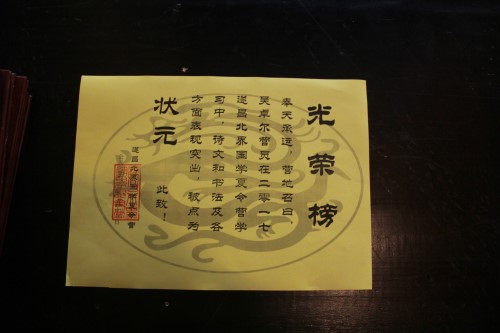 光荣榜
奉天承运，营地召曰，
吴卓尔营员在二零一七
遂昌北界国学夏令营学
习中，诗文和书法及各
方面表现突出，被点为
状元
此致！
遂昌北界国学夏令营